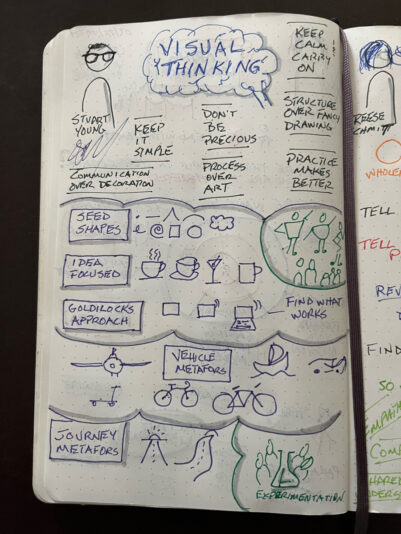 VISUAL
THINKING
KEEP
CALM &
CARRY
ON
STUART
YOUNG
KEEP
IT
SIMPLE
DON'T
BE
PRECIOUS
STRUCTURE
OVER FANCY
DRAWING
COMMUNICATION
OVER DECORATION
PROCESS
OVER
ART
PRACTICE
MAKES
BETTER
SEED
SHAPES
IDEA
FOCUSED
GOLDILOCKS
APPROACH
FIND WHAT
WORKS
VEHICLE
METAFORS
JOURNEY
METAFORS
EXPERIMENTATION
REESE
SCHMIT
WHOLE
TELL
TELL
P
REV
FIND
SO
EMPATH
COM
SHARED